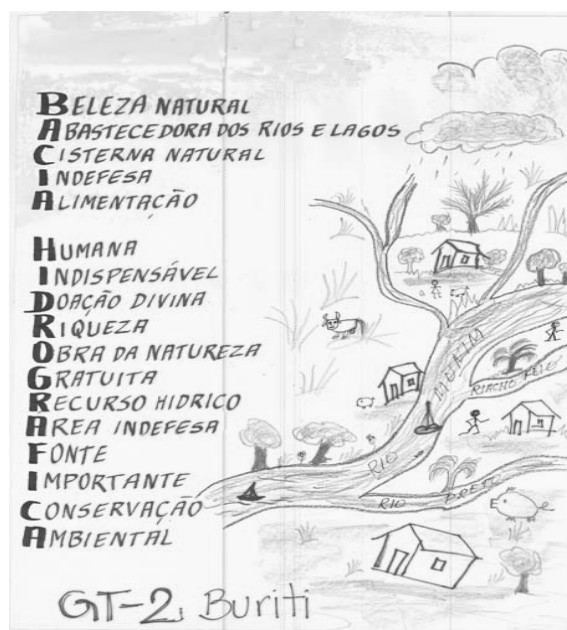 BELEZA NATURAL
ABASTECEDORA DOS RIOS E LAGOS
CISTERNA NATURAL
INDEFESA
ALIMENTAÇÃO
HUMANA
INDISPENSÁVEL
DOAÇÃO DIVINA
RIQUEZA
OBRA DA NATUREZA
GRATUITA
RECURSO HIDRICO
AREA INDEFESA
FONTE
IMPORTANTE
CONSERVAÇÃO
AMBIENTAL
RIO MUNIM
RIACHO FEIO
RIO PRETO
GT-2, Buriti